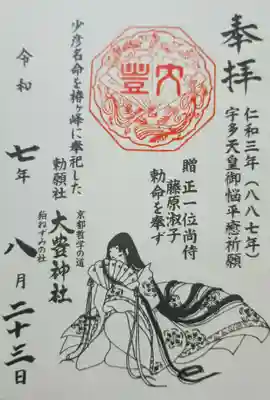 奉拝
仁和三年(八八七年)
宇多天皇御悩平癒祈願
贈 正一位尚侍
藤原淑子
勅命を奉ず
大豊
少彦名命を椿ヶ峰に奉祀した
勅願社
京都哲学の道
大豊神社
狛ねずみの社
令和七年八月二十三日